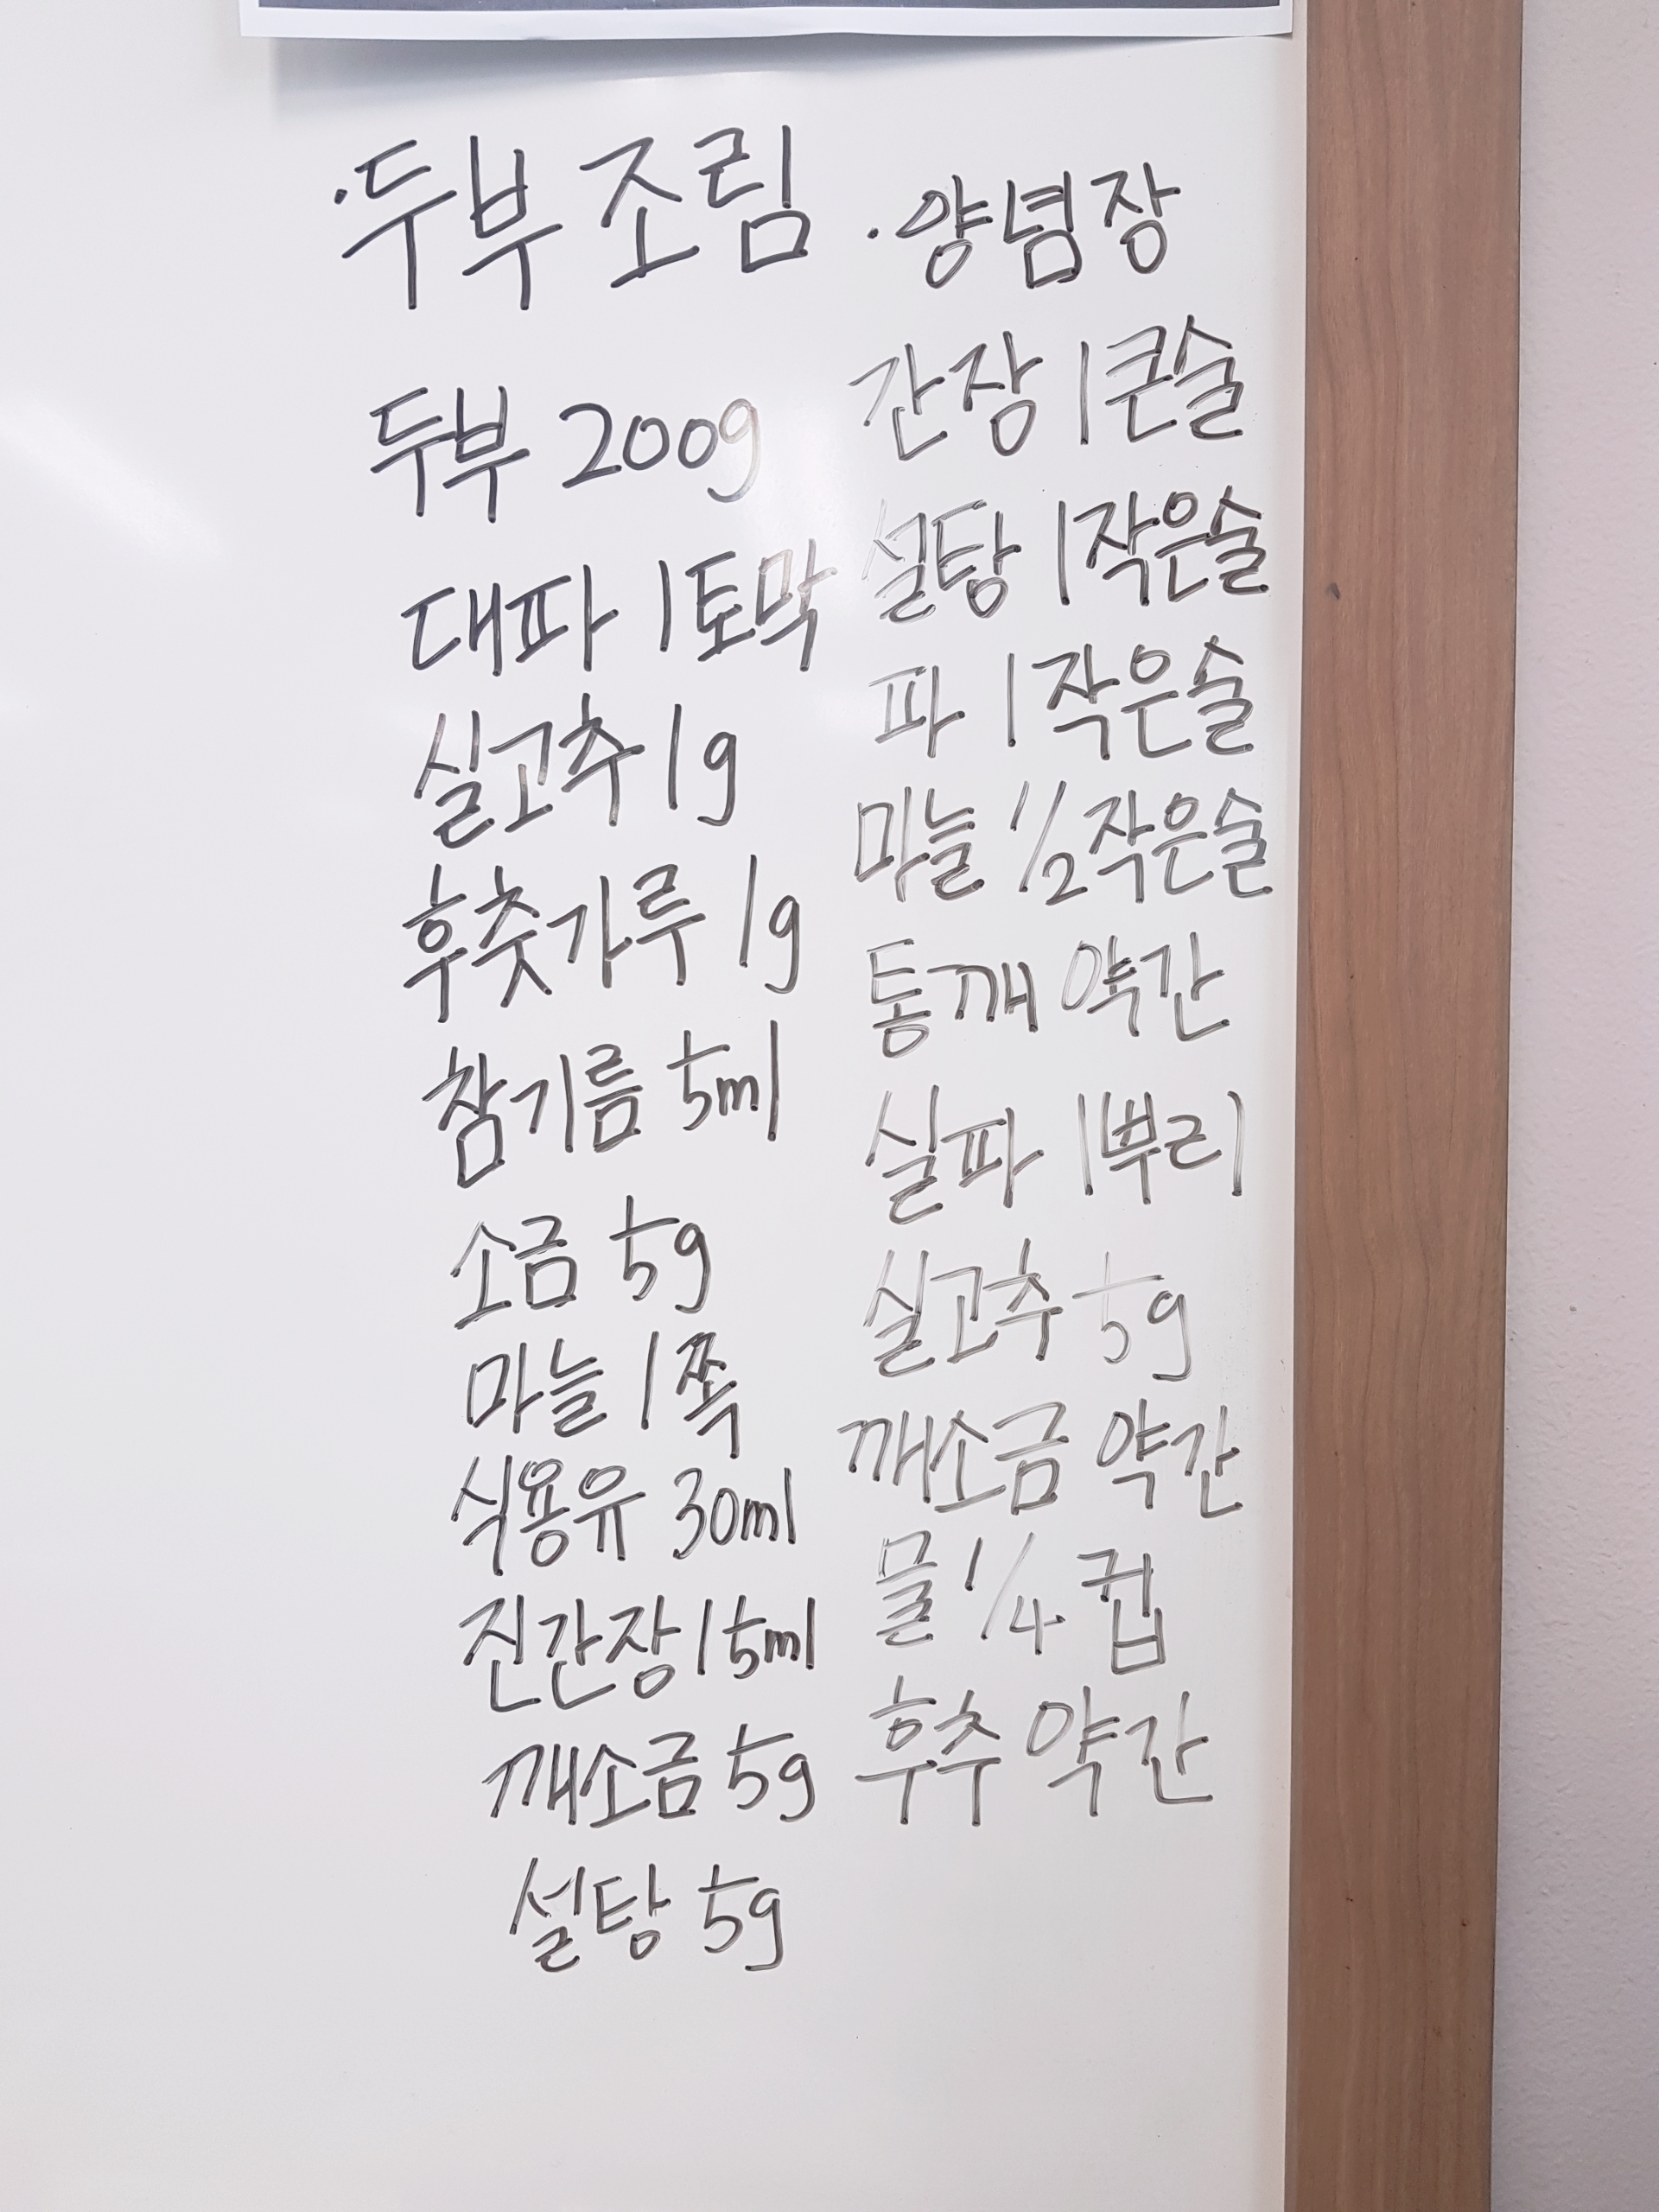 ·두부 조림
두부 200g
대파 1토막
실고추 1g
후춧가루 1g
참기름 5ml
소금 5g
마늘 1쪽
식용유 30ml
진간장 15ml
깨소금 5g
설탕 5g
·양념장
간장 1큰술
설탕 1작은술
파 1작은술
마늘 1/2작은술
통깨 약간
실파 1뿌리
실고추 5g
깨소금 약간
물 1/4 컵
후추 약간